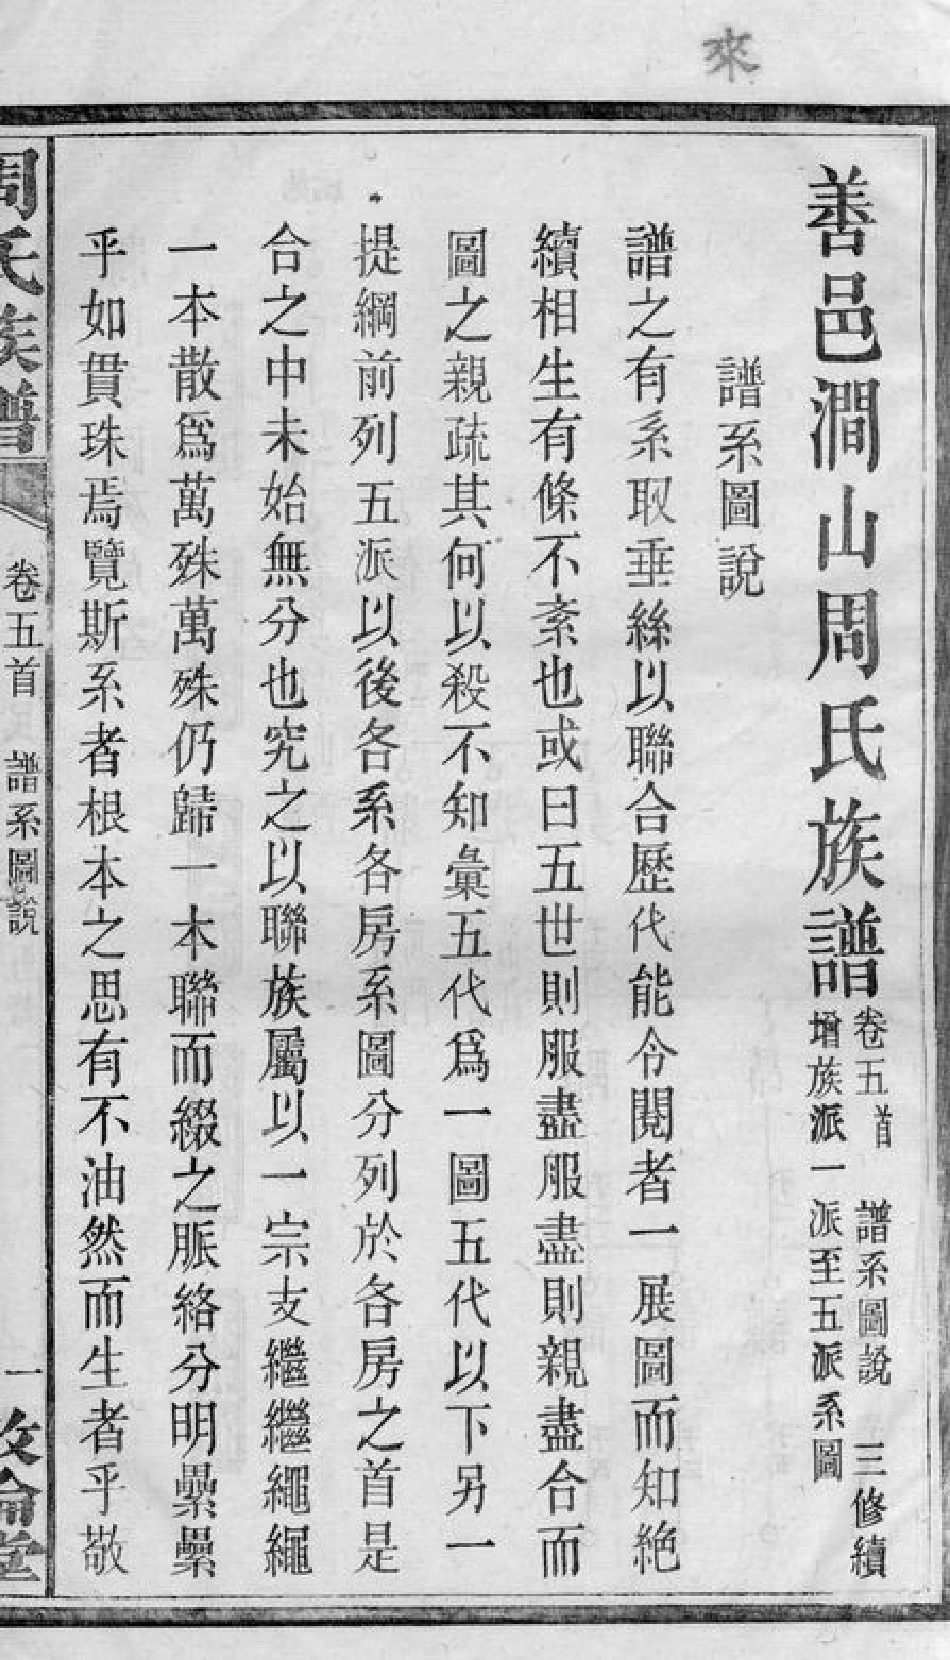 來
善邑澗山周氏族譜
卷五首 譜系圖說 三修續
增族派一派至五派系圖
譜系圖說
譜之有系取垂絲以聯合歷代能令閱者一展圖而知絶
續相生有條不紊也或曰五世則服盡服盡則親盡合而
圖之親疏其何以殺不知彙五代爲一圖五代以下另一
提綱前列五派以後各系各房系圖分列於各房之首是
合之中未始無分也究之以聯族屬以一宗支繼繼繩繩
一本散爲萬殊萬殊仍歸一本聯而綴之脈絡分明纍纍
乎如貫珠焉覽斯系者根本之思有不油然而生者乎敬
周氏族譜 卷五首 譜系圖說 一 敦倫堂